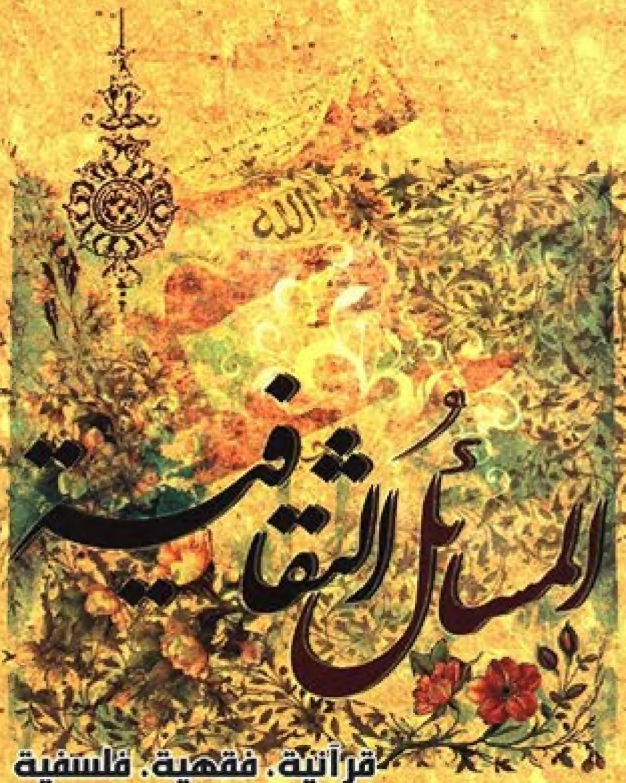 الله
المسائلُ الثقافية
قرآنية. فقهية. فلسفية